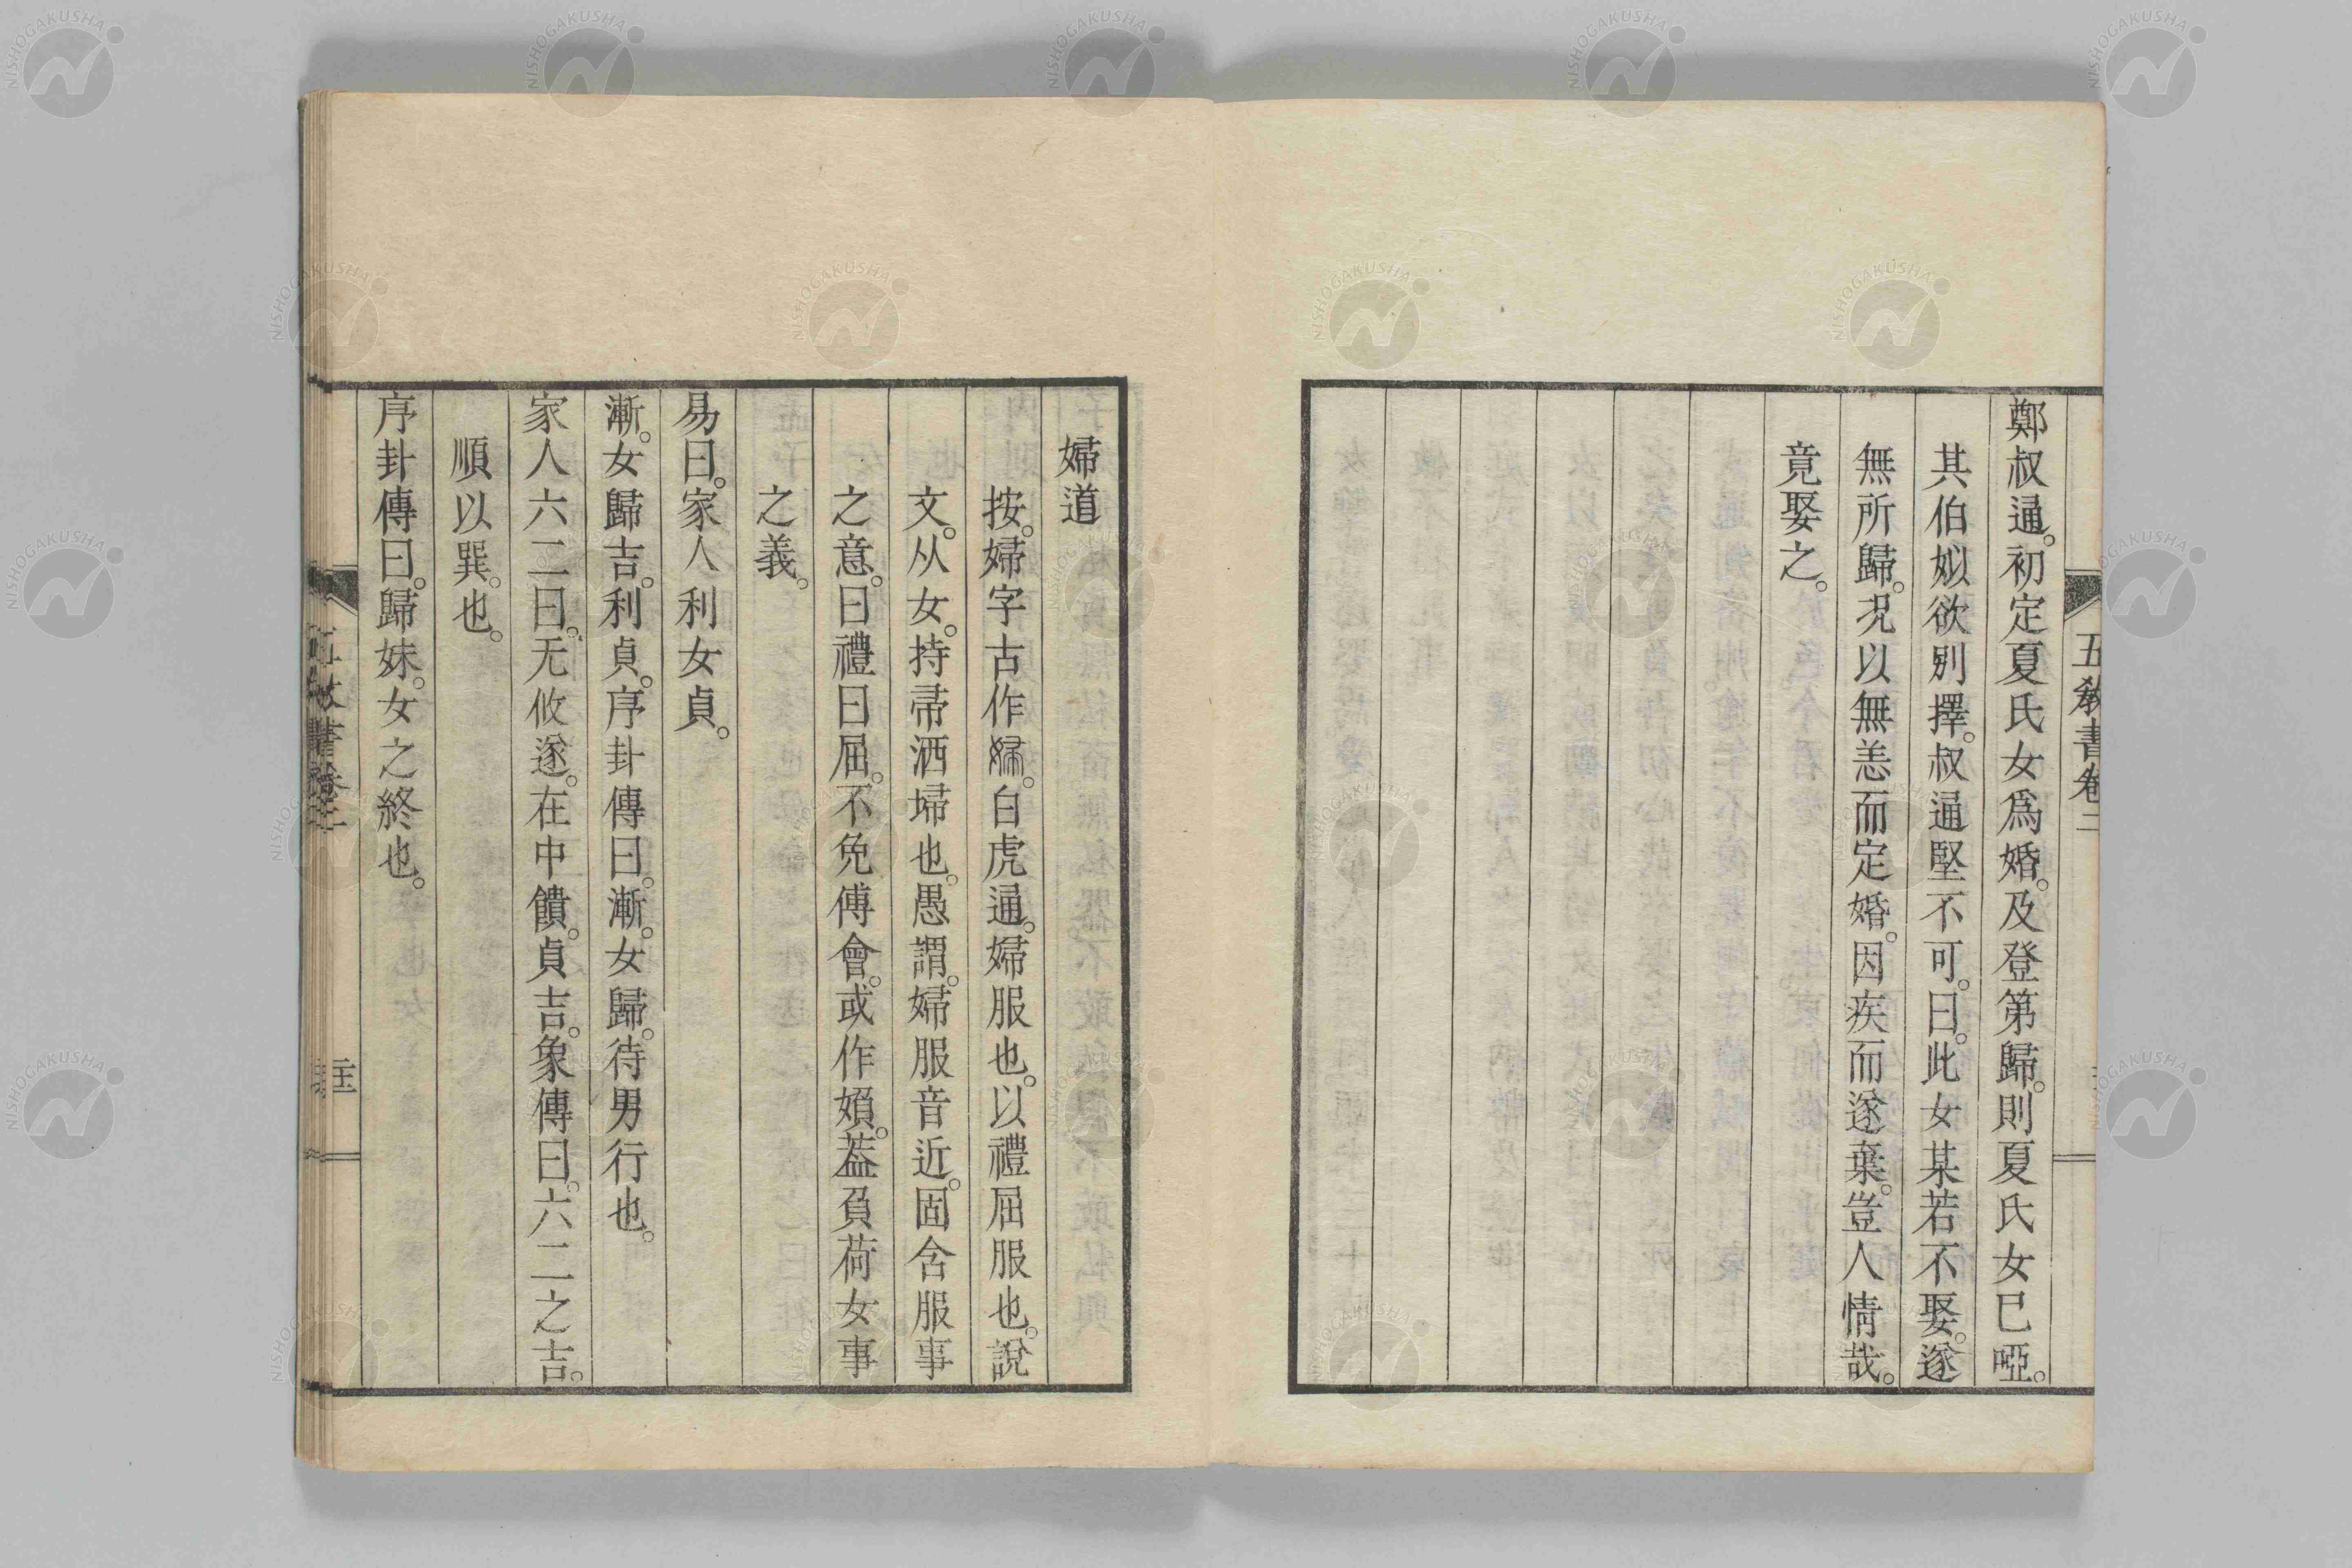 五敎書卷二
鄭叔通。初定夏氏女爲婚。及登第歸。則夏氏女巳啞。
其伯姒欲別擇。叔通堅不可。曰。此女某若不娶。遂
無所歸。况以無恙而定婚。因疾而遂棄。豈人情哉。
竟娶之。
婦道
按。婦字古作㛐。白虎通。婦服也。以禮屈服也。說
文。从女。持帚洒埽也。愚謂。婦服音近。固含服事
之意。曰禮曰屈。不免傅會。或作媍。葢負荷女事
之義。
易曰。家人利女貞。
漸。女歸吉。利貞。序卦傳曰。漸。女歸。待男行也。
家人六二曰。无攸遂。在中饋。貞吉。象傳曰。六二之吉。
順以巽。也。
序卦傳曰。歸妹。女之終也。
NISHOGAKUSHA